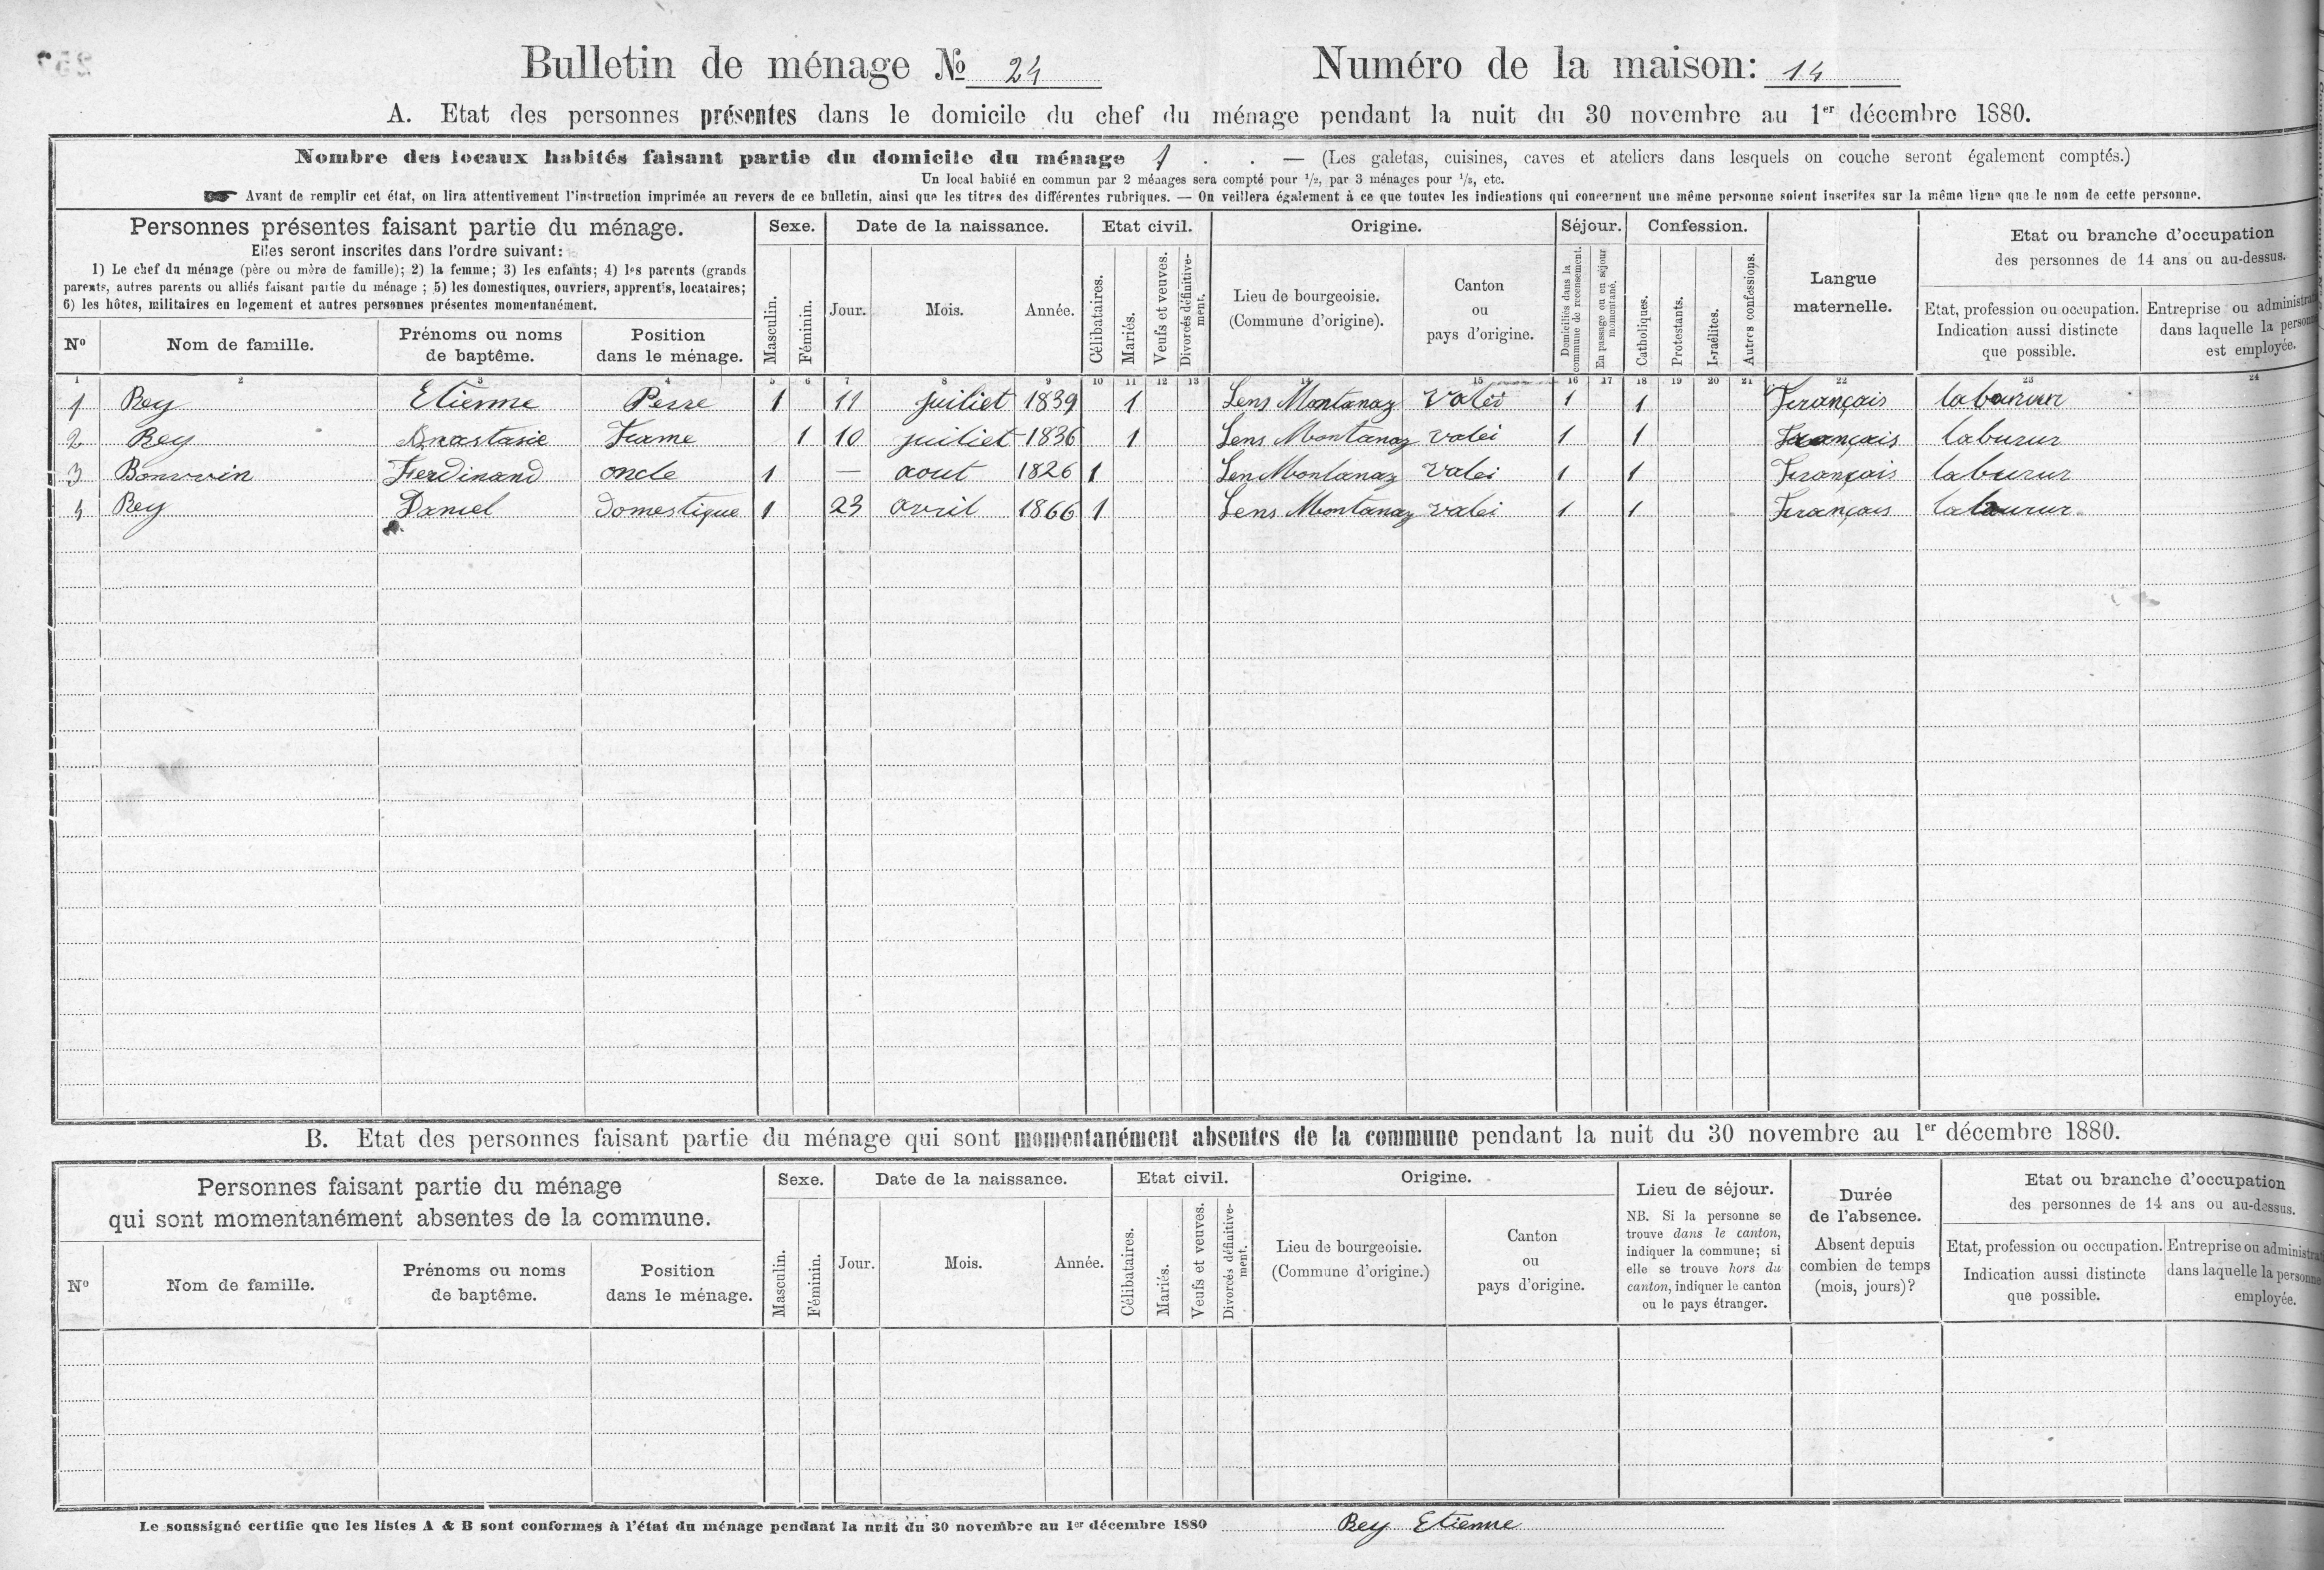 Bulletin de ménage № 24
Numéro de la maison: 14
A. Etat des personnes présentes dans le domicile du chef du ménage pendant la nuit du 30 novembre au 1er décembre 1880.
Nombre des locaux habités faisant partie du domicile du ménage 1 . . — (Les galetas, cuisines, caves et ateliers dans lesquels on couche seront également comptés.)
Un local habité en commun par 2 ménages sera compté pour 1/2, par 3 ménages pour 1/3, etc.
☛ Avant de remplir cet état, on lira attentivement l'instruction imprimée au revers de ce bulletin, ainsi que les titres des différentes rubriques. — On veillera également à ce que toutes les indications qui concernent une même personne soient inscrites sur la même ligne que le nom de cette personne.
Personnes présentes faisant partie du ménage.
Elles seront inscrites dans l'ordre suivant:
1) Le chef du ménage (père ou mère de famille); 2) la femme; 3) les enfants; 4) les parents (grands
parents, autres parents ou alliés faisant partie du ménage ; 5) les domestiques, ouvriers, apprentis, locataires;
6) les hôtes, militaires en logement et autres personnes présentes momentanément.
No
Nom de famille.
Prénoms ou noms
de baptême.
Position
dans le ménage.
Sexe.
Masculin.
Féminin.
Date de la naissance.
Jour.
Mois.
Année.
Etat civil.
Célibataires.
Mariés.
Veufs et veuves.
Divorcés définitive-
ment.
Origine.
Lieu de bourgeoisie.
(Commune d'origine).
Canton
ou
pays d'origine.
Séjour.
Domiciliés dans la
commune de recensement.
En passage ou en séjour
momentané.
Confession.
Catholiques.
Protestants.
Israélites.
Autres confessions.
Langue
maternelle.
Etat ou branche d'occupation
des personnes de 14 ans ou au-dessus.
Etat, profession ou occupation.
Indication aussi distincte
que possible.
Entreprise ou administra
dans laquelle la personn
est employée.
1 2 3 4 5 6 7 8 9 10 11 12 13 14 15 16 17 18 19 20 21 22 23 24
1 Rey Etienne Perre 1 11 juiliet 1839 1 Lens Montanaz Valei 1 1 Français labourur
2 Rey Anastasie Frame 1 10 juiliet 1836 1 Lens Montanaz valei 1 1 Français laburur
3 Bonvvin Ferdinand oncle 1 — aout 1826 1 Len Montanaz Valei 1 1 Français laburur
4 Rey Daniel domestique 1 23 avril 1866 1 Lens Montanaz valei 1 1 Français labourur
B. Etat des personnes faisant partie du ménage qui sont momentanément absentes de la commune pendant la nuit du 30 novembre au 1er décembre 1880.
Personnes faisant partie du ménage
qui sont momentanément absentes de la commune.
No
Nom de famille.
Prénoms ou noms
de baptême.
Position
dans le ménage.
Sexe.
Masculin.
Féminin.
Date de la naissance.
Jour.
Mois.
Année.
Etat civil.
Célibataires.
Mariés.
Veufs et veuves.
Divorcés définitive-
ment.
Origine.
Lieu de bourgeoisie.
(Commune d'origine.)
Canton
ou
pays d'origine.
Lieu de séjour.
NB. Si la personne se
trouve dans le canton,
indiquer la commune; si
elle se trouve hors du
canton, indiquer le canton
ou le pays étranger.
Durée
de l'absence.
Absent depuis
combien de temps
(mois, jours)?
Etat ou branche d'occupation
des personnes de 14 ans ou au-dessus.
Etat, profession ou occupation.
Indication aussi distincte
que possible.
Entreprise ou administra
dans laquelle la personne
employée.
Le soussigné certifie que les listes A & B sont conformes à l'état du ménage pendant la nuit du 30 novembre au 1er décembre 1880 Rey Etienne